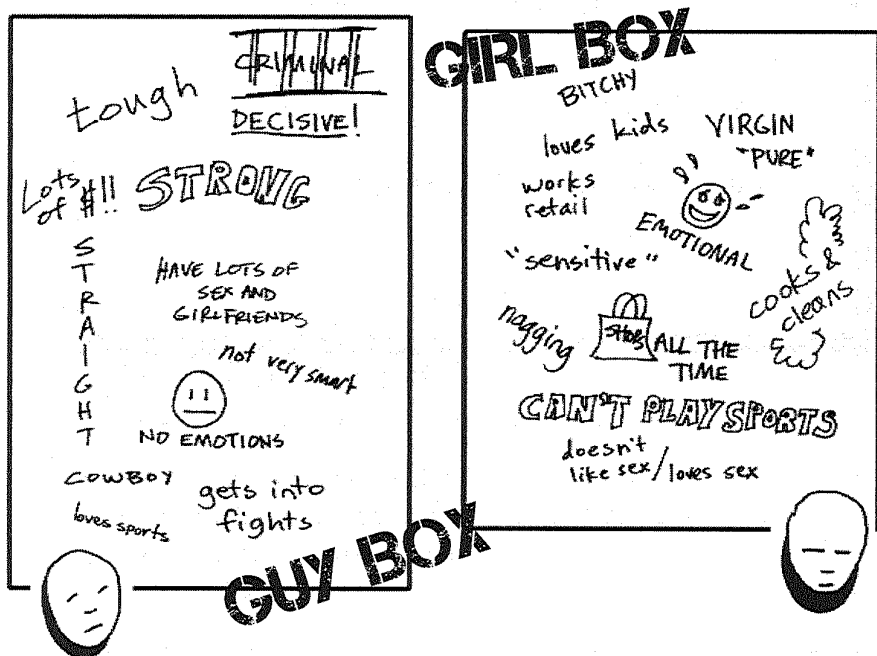 CRIMINAL
tough
DECISIVE!
Lots
of $!!
STRONG
STRAIGHT
HAVE LOTS OF
SEX AND
GIRLFRIENDS
not very smart
NO EMOTIONS
COWBOY
loves sports
gets into
fights
GUY BOX
GIRL BOX
BITCHY
loves kids
VIRGIN
"PURE"
works
retail
EMOTIONAL
"sensitive"
cooks &
cleans
nagging
SHOPS
ALL THE
TIME
CAN'T PLAY SPORTS
doesn't
like sex/loves sex